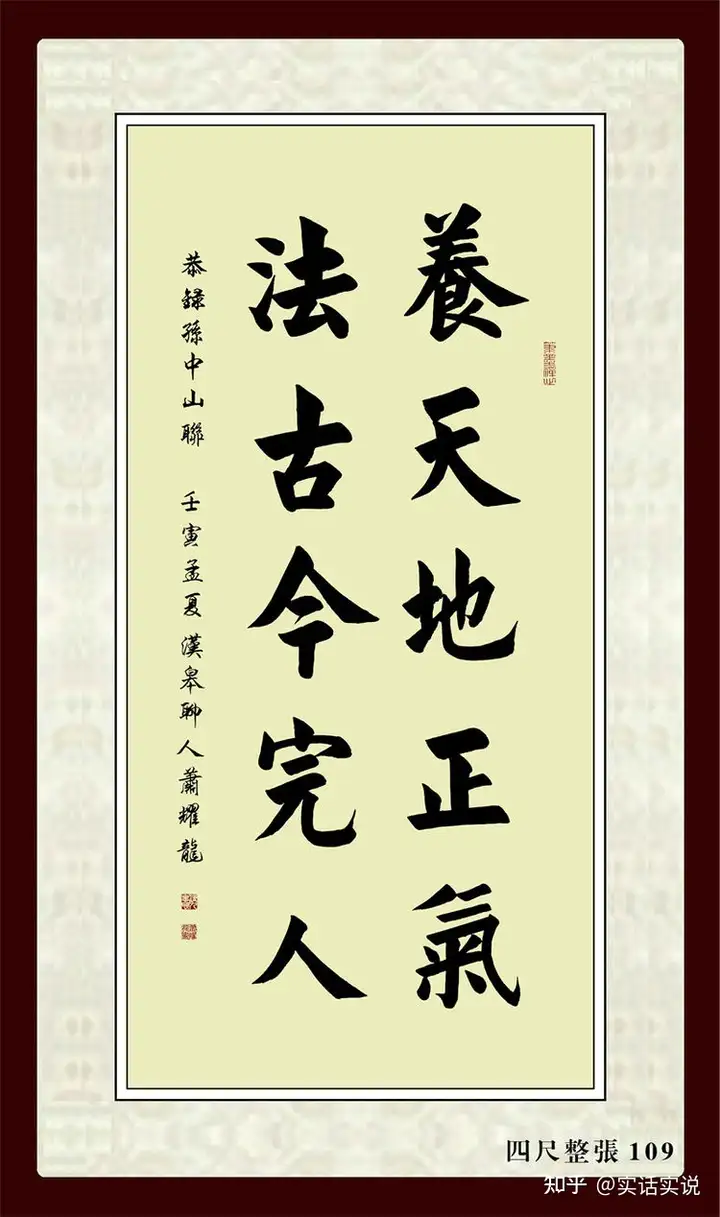 養天地正氣
法古今完人
恭録孫中山聯 壬寅孟夏漢皋聊人蕭耀龍
四尺整張 109
知乎 @实话实说